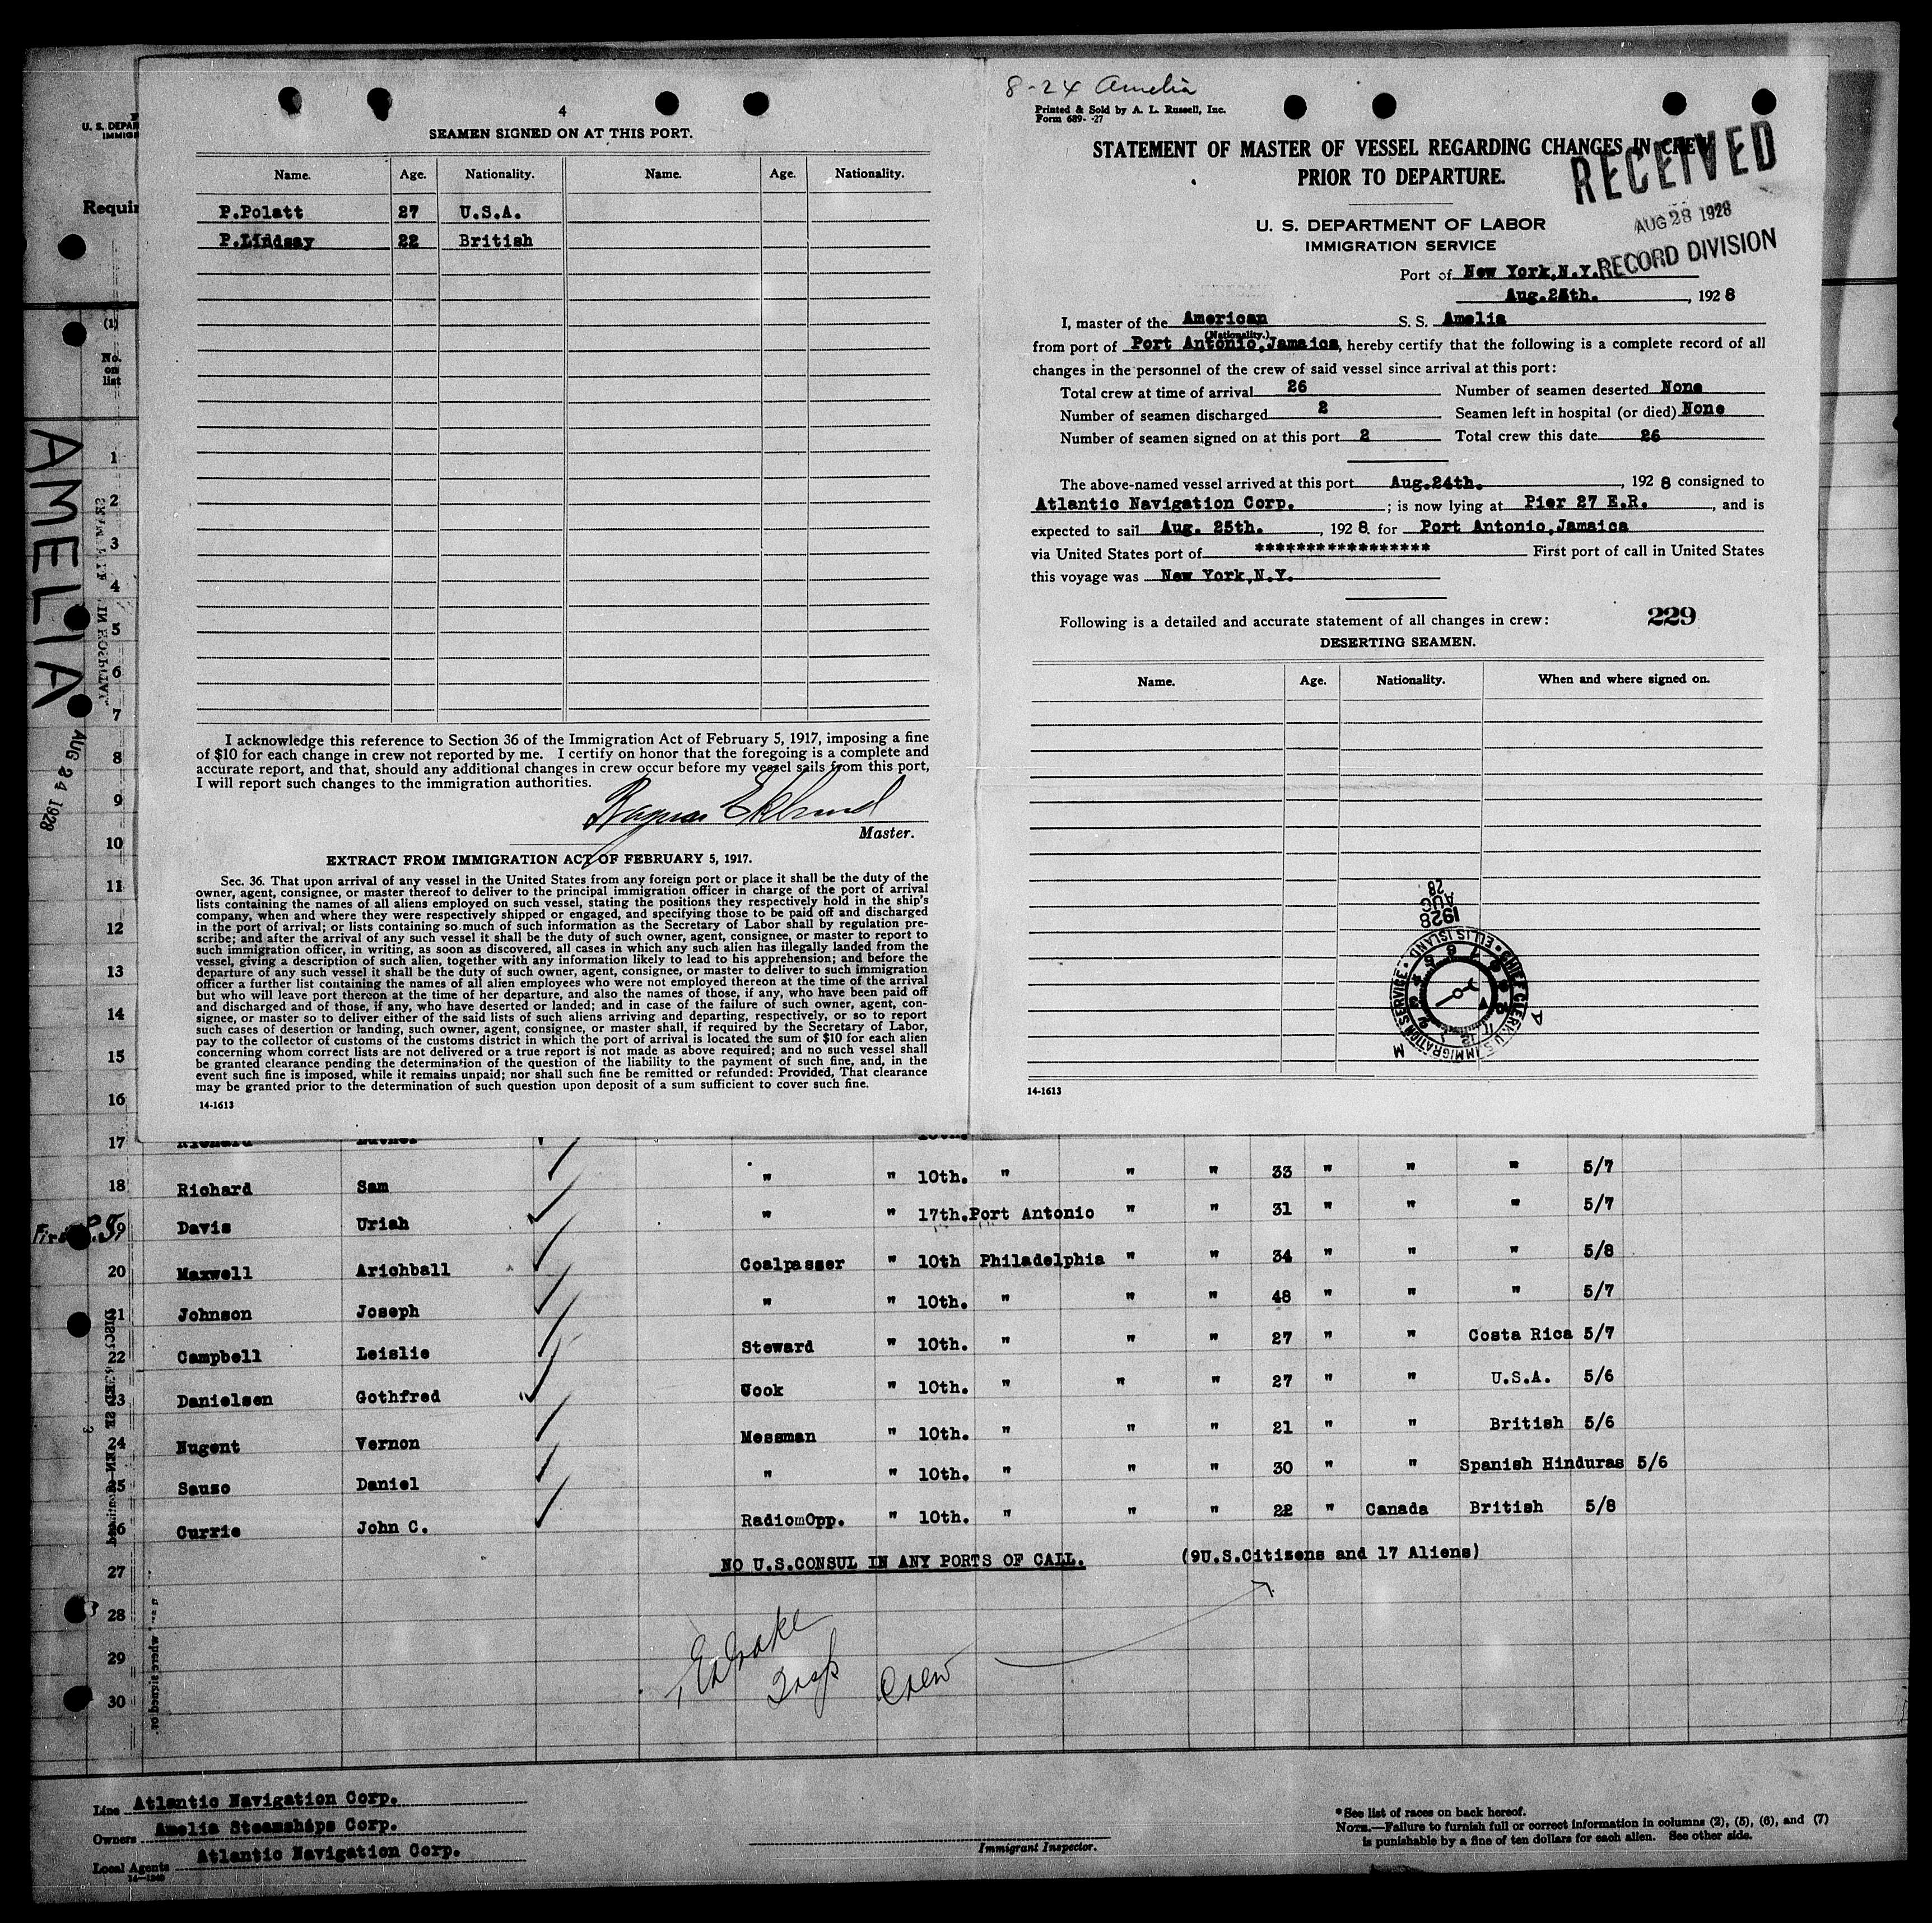 4
SEAMEN SIGNED ON AT THIS PORT.
Name. Age. Nationality. Name. Age. Nationality.
P.Polatt 27 U.S.A.
P.Lindsay 22 British
I acknowledge this reference to Section 36 of the Immigration Act of February 5, 1917, imposing a fine
of $10 for each change in crew not reported by me. I certify on honor that the foregoing is a complete and
accurate report, and that, should any additional changes in crew occur before my vessel sails from this port,
I will report such changes to the immigration authorities.
Ragnar Eklund
Master.
EXTRACT FROM IMMIGRATION ACT OF FEBRUARY 5, 1917.
Sec. 36. That upon arrival of any vessel in the United States from any foreign port or place it shall be the duty of the
owner, agent, consignee, or master thereof to deliver to the principal immigration officer in charge of the port of arrival
lists containing the names of all aliens employed on such vessel, stating the positions they respectively hold in the ship's
company, when and where they were respectively shipped or engaged, and specifying those to be paid off and discharged
in the port of arrival; or lists containing so much of such information as the Secretary of Labor shall by regulation pre-
scribe; and after the arrival of any such vessel it shall be the duty of such owner, agent, consignee, or master to report to
such immigration officer, in writing, as soon as discovered, all cases in which any such alien has illegally landed from the
vessel, giving a description of such alien, together with any information likely to lead to his apprehension; and before the
departure of any such vessel it shall be the duty of such owner, agent, consignee, or master to deliver to such immigration
officer a further list containing the names of all alien employees who were not employed thereon at the time of the arrival
but who will leave port thereon at the time of her departure, and also the names of those, if any, who have been paid off
and discharged and of those, if any, who have deserted or landed; and in case of the failure of such owner, agent, con-
signee, or master so to deliver either of the said lists of such aliens arriving and departing, respectively, or so to report
such cases of desertion or landing, such owner, agent, consignee, or master shall, if required by the Secretary of Labor,
pay to the collector of customs of the customs district in which the port of arrival is located the sum of $10 for each alien
concerning whom correct lists are not delivered or a true report is not made as above required; and no such vessel shall
be granted clearance pending the determination of the question of the liability to the payment of such fine, and, in the
event such fine is imposed, while it remains unpaid; nor shall such fine be remitted or refunded: Provided, That clearance
may be granted prior to the determination of such question upon deposit of a sum sufficient to cover such fine.
14-1613
8-24 Amelia
Printed & Sold by A. L. Russell, Inc.
Form 689- -27
STATEMENT OF MASTER OF VESSEL REGARDING CHANGES IN CREW
PRIOR TO DEPARTURE.
RECEIVED
AUG 28 1928
RECORD DIVISION
U. S. DEPARTMENT OF LABOR
IMMIGRATION SERVICE
Port of New York,N.Y.
Aug.25th., 1928
I, master of the American S. S. Amelia
(Nationality.)
from port of Port Antonio,Jamaica, hereby certify that the following is a complete record of all
changes in the personnel of the crew of said vessel since arrival at this port:
Total crew at time of arrival 26 Number of seamen deserted None
Number of seamen discharged 2 Seamen left in hospital (or died) None
Number of seamen signed on at this port 2 Total crew this date 26
The above-named vessel arrived at this port Aug.24th., 1928 consigned to
Atlantic Navigation Corp.; is now lying at Pier 27 E.R., and is
expected to sail Aug. 25th., 1928 for Port Antonio,Jamaica
via United States port of ***************** First port of call in United States
this voyage was New York,N.Y.
Following is a detailed and accurate statement of all changes in crew: 229
DESERTING SEAMEN.
Name. Age. Nationality. When and where signed on.
1928
AUG
28
CHIEF CLERK U.S. IMMIGRATION SERVICE ELLIS ISLAND
14-1613
U. S. DEPAR
IMMIG
Requir
(1)
No.
on
list
AMELIA
AUG 24 1928
1
2
3
4
5
6
7
8
9
10
11
12
13
14
15
16
17
18 Richard Sam " " 10th. " " " 33 " " " 5/7
19 Davis Uriah " " 17th. Port Antonio " " 31 " " " 5/7
20 Maxwell Arichball Coalpasser " 10th Philadelphia " " 34 " " " 5/8
21 Johnson Joseph " " 10th. " " " 48 " " " 5/7
22 Campbell Leislie Steward " 10th. " " " 27 " " Costa Rica 5/7
23 Danielsen Gothfred Cook " 10th. " " " 27 " " U.S.A. 5/6
24 Nugent Vernon Messman " 10th. " " " 21 " " British 5/6
25 Sauzo Daniel " " 10th. " " " 30 " " Spanish Hinduras 5/6
26 Currie John C. RadiomOpp. " 10th. " " " 22 " Canada British 5/8
27 NO U.S.CONSUL IN ANY PORTS OF CALL. (9U.S.Citizens and 17 Aliens)
28
29
30
Insp Crew
Line Atlantic Navigation Corp.
Owners Amelia Steamships Corp.
Local Agents Atlantic Navigation Corp.
Immigrant Inspector.
* See list of races on back hereof.
NOTE.—Failure to furnish full or correct information in columns (2), (5), (6), and (7)
is punishable by a fine of ten dollars for each alien. See other side.